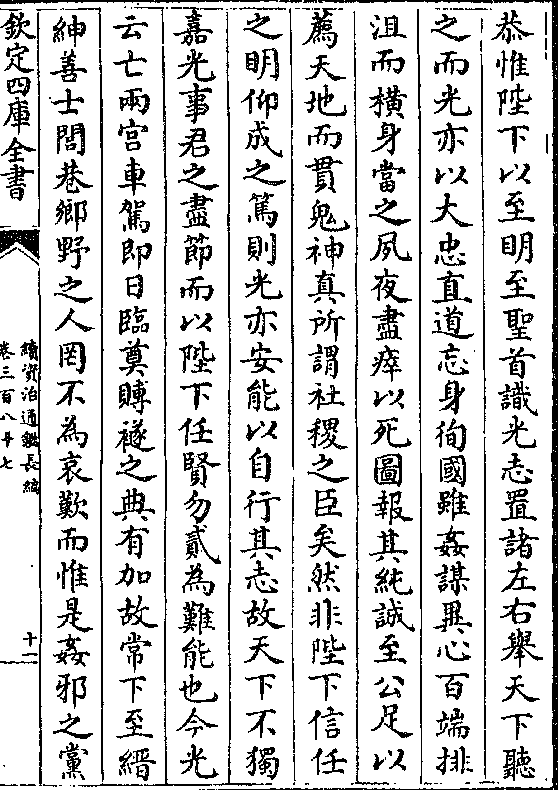 恭惟陛下以至明至聖首識光志置諸左右舉天下聽
之而光亦以大忠直道忘身徇國雖姦謀異心百端排
沮而橫身當之夙夜盡瘁以死圖報其純誠至公足以
薦天地而貫鬼神真所謂社稷之臣矣然非陛下信任
之明仰成之篤則光亦安能以自行其志故天下不獨
嘉光事君之盡節而以陛下任賢勿貳為難能也今光
云亡兩宫車駕即日臨奠賻襚之典有加故常下至縉
紳善士閭巷鄉野之人罔不為哀歎而惟是姦邪之黨
欽定四庫全書
續資治通鑑長編
卷三百八十七
十一